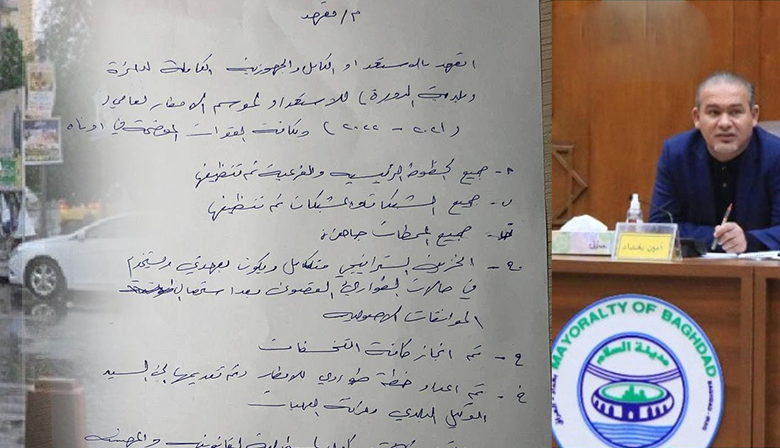 م/ تعهد
اتعهد بالاستعداد الكامل والجهوزية الكاملة لدائرة
(بلدية الدورة) للاستعداد لموسم الامطار لعامي
(٢٠٢١ - ٢٠٢٢) وبكافة الفقرات الموضحة في ادناه
جميع الخطوط الرئيسية والفرعية تم تنظيفها
ب- جميع الشبكات والمشبكات تم تنظيفها
جميع المحطات جاهزة
ج- الخزين الستراتيجي متكامل ويكون بعهدتي ويستخدم
في حالات الطوارئ القصوى بعد استحصال
الموافقات الاصولية
ح- تم انجاز كافة التخسفات
خ- تم اعداد خطة طوارئ للامطار وتم تقديمها الى السيد
الوكيل البلدي
امين بغداد
MAYORALTY OF BAGHDAD
مدينة السلام